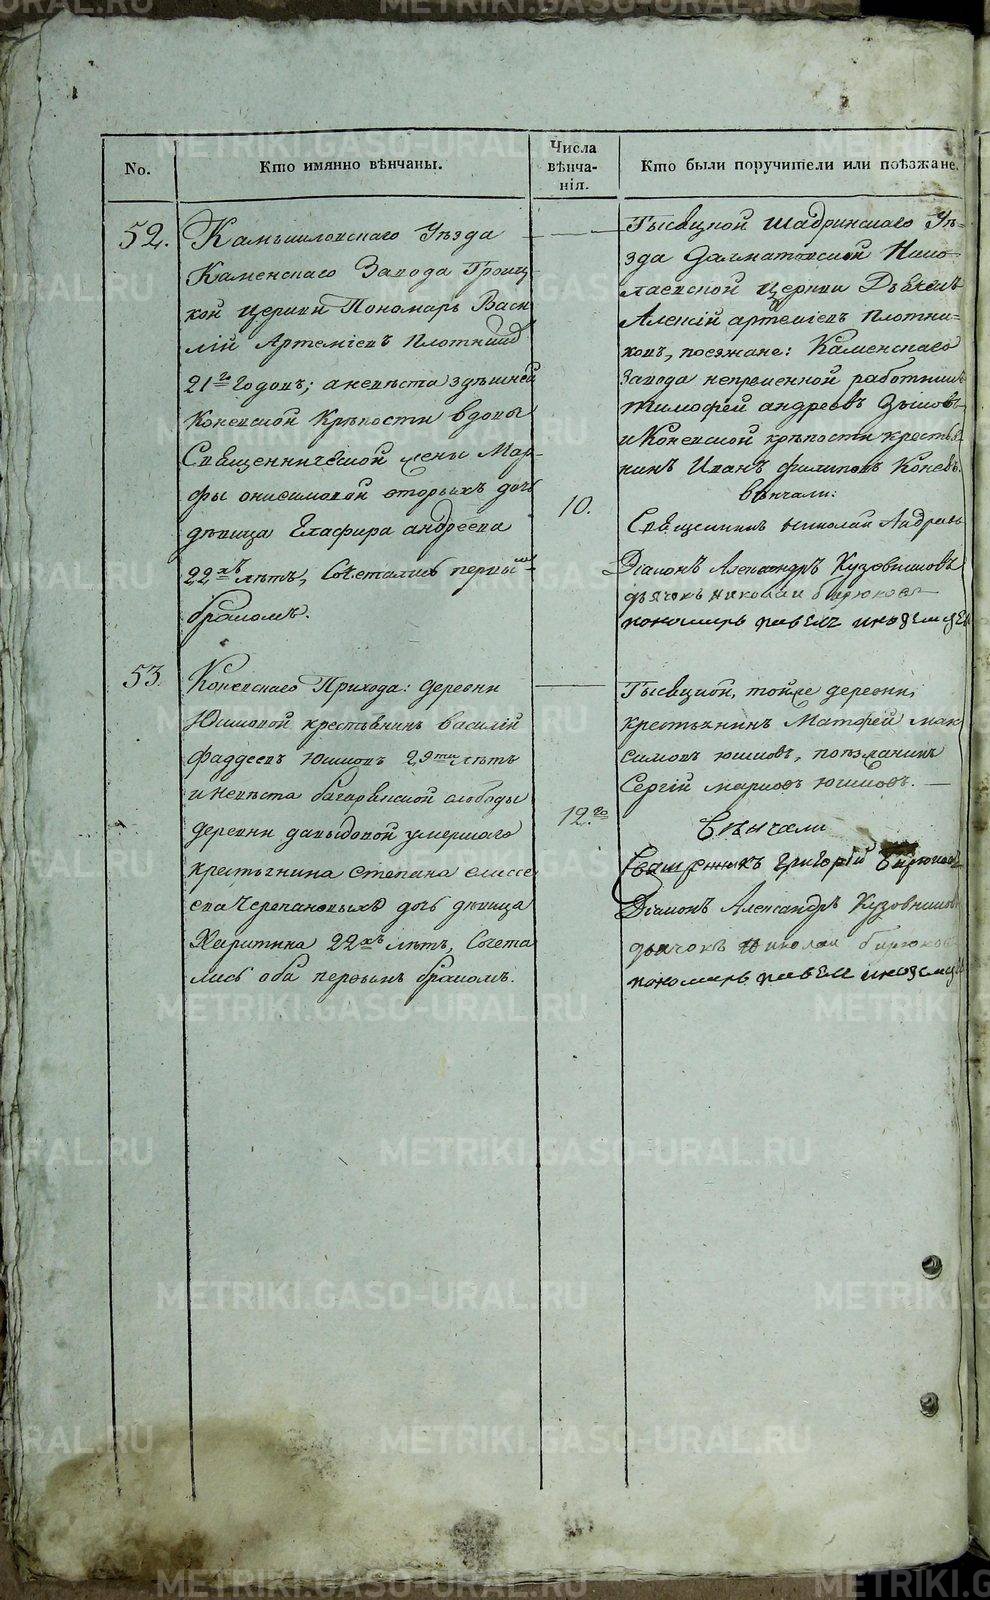 No.
Кто имянно вѣнчаны.
Числа
вѣнча-
нія.
Кто были поручители или поѣзжане.
52.
Камышловскаго Уѣзда
Каменскаго Завода Троиц-
кой церкви Пономарь Васи
лій Артеміевъ Плотниковъ
21го годовъ; а невѣста здѣшней
Коневской Крѣпости вдовы
Священнической жены Мар-
фы Онисимовой вторыхъ дочь
дѣвица Глафира Андреева
22хъ лѣтъ, Сочетались первымъ
бракомъ.
10.
Тысяцкой Шадринскаго Уѣ-
зда Далматовской Нико-
лаевской Церкви Дьяконъ
Алексій Артеміевъ Плотни-
ковъ, поезжане: Каменскаго
Завода непременной работникъ
Тимофей Андреевъ
и Коневской крѣпости кресть
нинъ Иванъ Филиповъ Коневъ.
Вѣнчали:
Священникъ Николай
Діаконъ Александръ Кузовниковъ
дьячокъ Николай Бирюковъ
пономарь Павелъ Иноземцев
53.
Коневскаго Прихода: деревни
Юшковой крестьянинъ Василій
Фаддеевъ Юшковъ 29ти лѣтъ
и невѣста Багарякской слободы
деревни Давыдовой умершаго
крестьянина Степана Елисе
ева Черепановыхъ дочь дѣвица
Харитина 22хъ лѣтъ, Сочета
лись оба первымъ бракомъ.
12.го
Тысяцкой, тойже деревни,
крестьянинъ Матфей мак
симовъ Юшковъ, поезжанинъ
Сергій марковъ Юшковъ.
Вѣнчали
Священникъ Григорій Бирюков
Діаконъ Александръ Кузовников
дьячокъ Николай Бирюков
пономарь Павел Иноземцев
METRIKI.GASO-URAL.RU